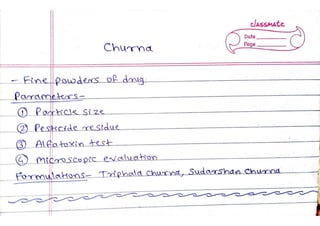 classmate
Date
Page
Churna
- Fine powders of drug.
Parameters-
① Particle size
② Pesticide residue
③ Alfatoxin test
④ microscopic evaluation
Formulations- Triphala churna, Sudarshan Churna